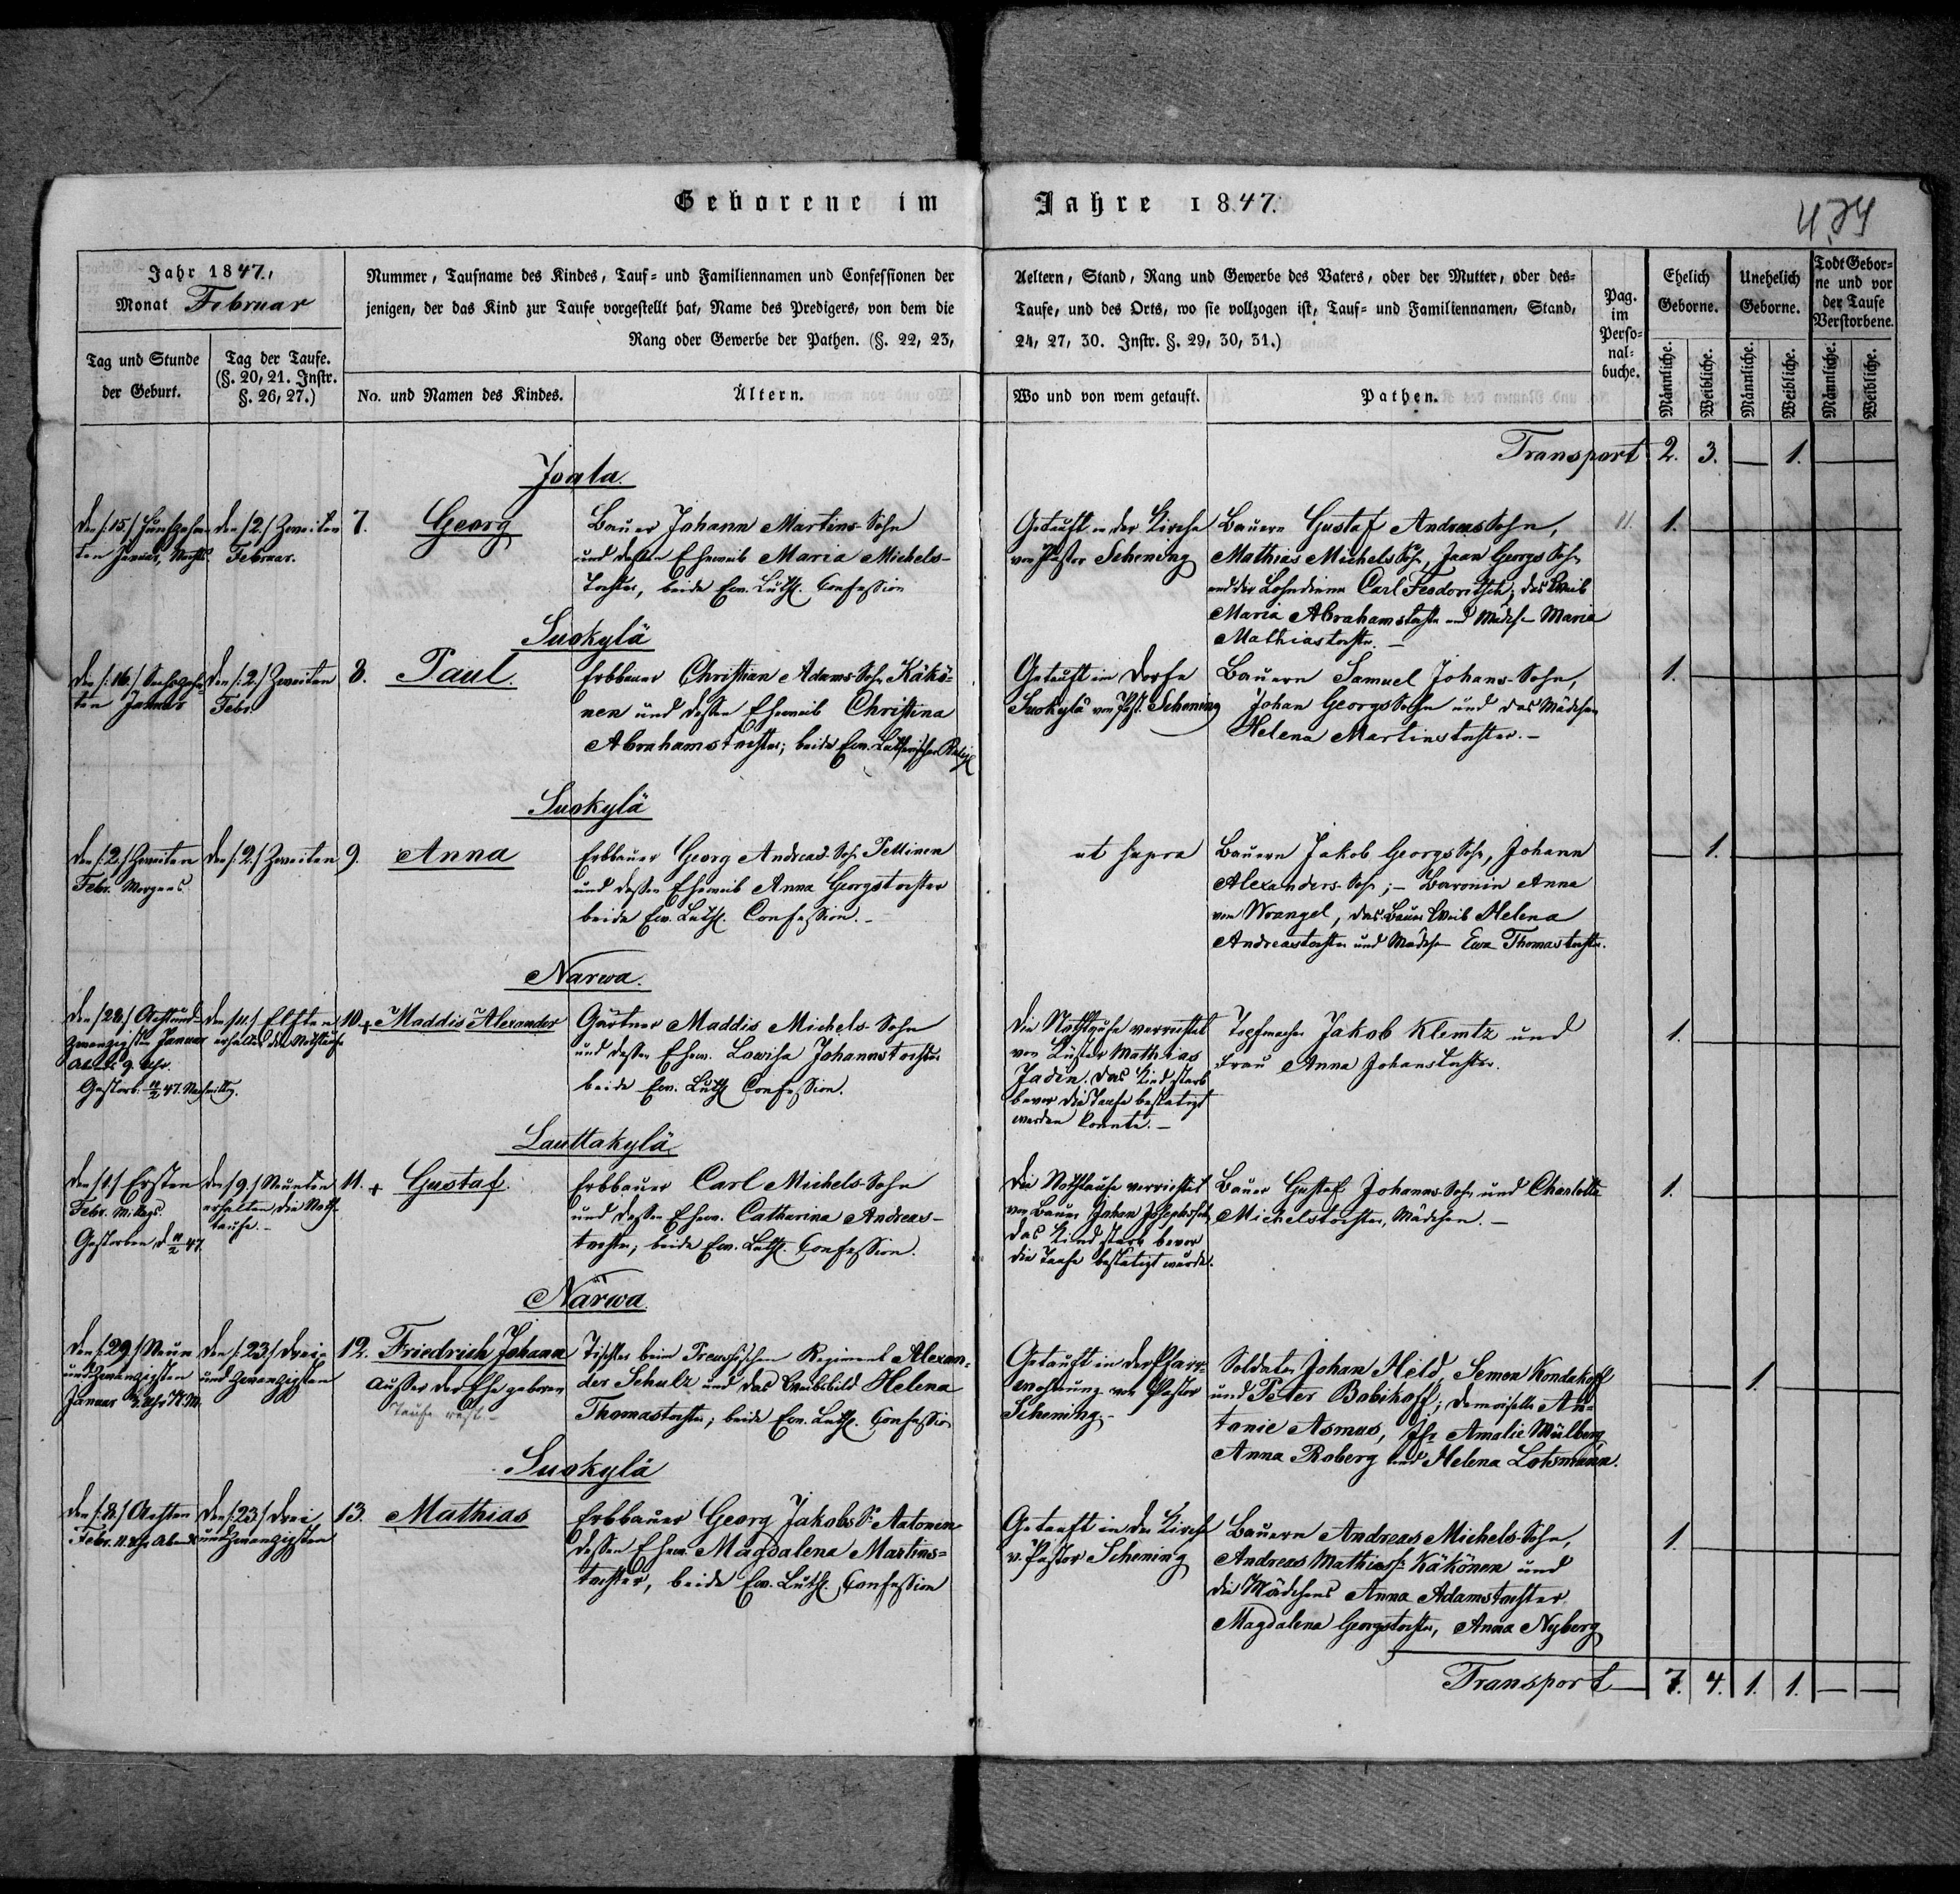 Geborene im Jahre 1847.
434
Jahr 1847.
Monat Februar
Nummer, Taufname des Kindes, Tauf= und Familiennamen und Confessionen der
jenigen, der das Kind zur Taufe vorgestellt hat, Name des Predigers, von dem die
Rang oder Gewerbe der Pathen. (§. 22, 23,
Tag und Stunde
der Geburt.
Tag der Taufe.
(§. 20, 21. Instr.
§. 26, 27.)
No. und Namen des Kindes.
Ältern.
Aeltern, Stand, Rang und Gewerbe des Vaters, oder der Mutter, oder des=
Taufe, und des Orts, wo sie vollzogen ist, Tauf= und Familiennamen, Stand,
24, 27, 30. Instr. §. 29, 30, 31.)
Wo und von wem getauft.
Pathen.
Pag.
im
Perso=
nal=
buche.
Ehelich
Geborne.
Unehelich
Geborne.
Todt Gebor=
ne und vor
der Taufe
Verstorbene.
Männliche.
Weibliche.
Männliche.
Weibliche.
Männliche.
Weibliche.
Transport 2. 3. — 1. — —
Joala.
den /:15./ Fünfzehn-
ten Januar, Nachts.
den /:2./ Zweiten
Februar.
7. Georg
Bauer Johann Martins-Sohn
und dessen Eheweib Maria Michels-
Tochter, beide Ev. Luth. Confession
Getauft in der Kirche
von Pastor Schening
Bauern Gustaf Andreas Sohn,
Mathias Michels Sohn, Jaan Georgs Sohn
und der Lohndiener Carl Feodoritsch; das Weib
Maria Abrahamstochter und Mädch. Maria
Mathiastochter. —
11. 1.
Suokylä
den /:16./ Sechszehn-
ten Januar
den /:2./ Zweiten
Febr.
8. Paul.
Erbbauer Christian Adams-Sohn Käkö-
nen und dessen Eheweib Christina
Abrahamstochter; beide Ev. Lutherischen Relig.
Getauft im Dorfe
Suokylä von Past. Schening
Bauern Samuel Johans-Sohn,
Johan Georgs Sohn und das Mädchen
Helena Martinstochter. —
1.
Suokylä
den /:2./ Zweiten
Febr. Morgens.
den /:2./ Zweiten
9. Anna
Erbbauer Georg Andreas-Sohn Pettinen
und dessen Eheweib Anna Georgstochter
beide Ev. Luth. Confession. —
ut supra
Bauern Jakob Georgs Sohn, Johann
Alexanders-Sohn; — Baronin Anna
von Wrangel, das Bauer Weib Helena
Andreastochter und Mädch. Ewa Thomastochter.
1.
Narwa.
den /28./ Achtund-
zwanzigsten Januar
Abends 9. Uhr.
Gestorb. 11/2 47. Nachmittag.
den /:11./ Elften
erhalten die Nothtaufe
10. + Maddis Alexander
Gärtner Maddis Michels-Sohn
und dessen Ehew. Lowisa Johannstochter
beide Ev. Luth. Confession.
Die Nothtaufe verrichtet
von Küster Mathias
Jadin. Das Kind starb
bevor die Taufe bestätigt
werden konnte. —
Topfmacher Jakob Klemtz und
Frau Anna Johanstochter.
1.
Lauttakylä
den /1./ Ersten
Febr. Mittags.
Gestorben, d. 11/2 47.
den /9./ Neunten
erhalten die Noth-
taufe. —
11. + Gustaf.
Erbbauer Carl Michels-Sohn
und dessen Ehew. Catharina Andreas-
tochter, beide Ev. Luth. Confession.
Die Nothtaufe verrichtet
von Bauer Johan Josephssohn
das Kind starb bevor
die Taufe bestätigt wurde.
Bauer Gustaf Johanns-Sohn und Charlotta
Michelstochter, Mädchen. —
1.
Narwa
den /:29./ Neun
und zwanzigsten
Januar Uhr N.M.
den /:23./ drei-
und zwanzigsten
12. Friedrich Johann
Ausser der Ehe geboren
Tischler beim Preussischen Regiment Alexan-
der Schulz und das Weibsbild Helena
Thomastochter; beide Ev. Luth. Confession
Getauft in der Pfarr-
wohnung von Pastor
Schening. —
Soldaten Johan Held, Semen Kondakoff
und Peter Bobikoff; Demoiselle An-
tonie Asmus, Jfr Amalie Wülberg
Anna Roberg und Helena Lotsmann.
1.
Suokylä
den /:8./ Achten
Febr. 11. Uhr Abends
den /:23./ drei
und zwanzigsten
13. Mathias
Erbbauer Georg Jakobs S: Aatonen
dessen Ehew. Magdalena Martins-
tochter, beide Ev. Luth. Confession
Getauft in der Kirche
v. Pastor Schening
Bauern Andreas Michels-Sohn,
Andreas Mathias S: Käkönen und
die Mädchens Anna Adamstochter
Magdalena Georgstochter, Anna Nyberg
1.
Transport — 7. 4. 1. 1. — —